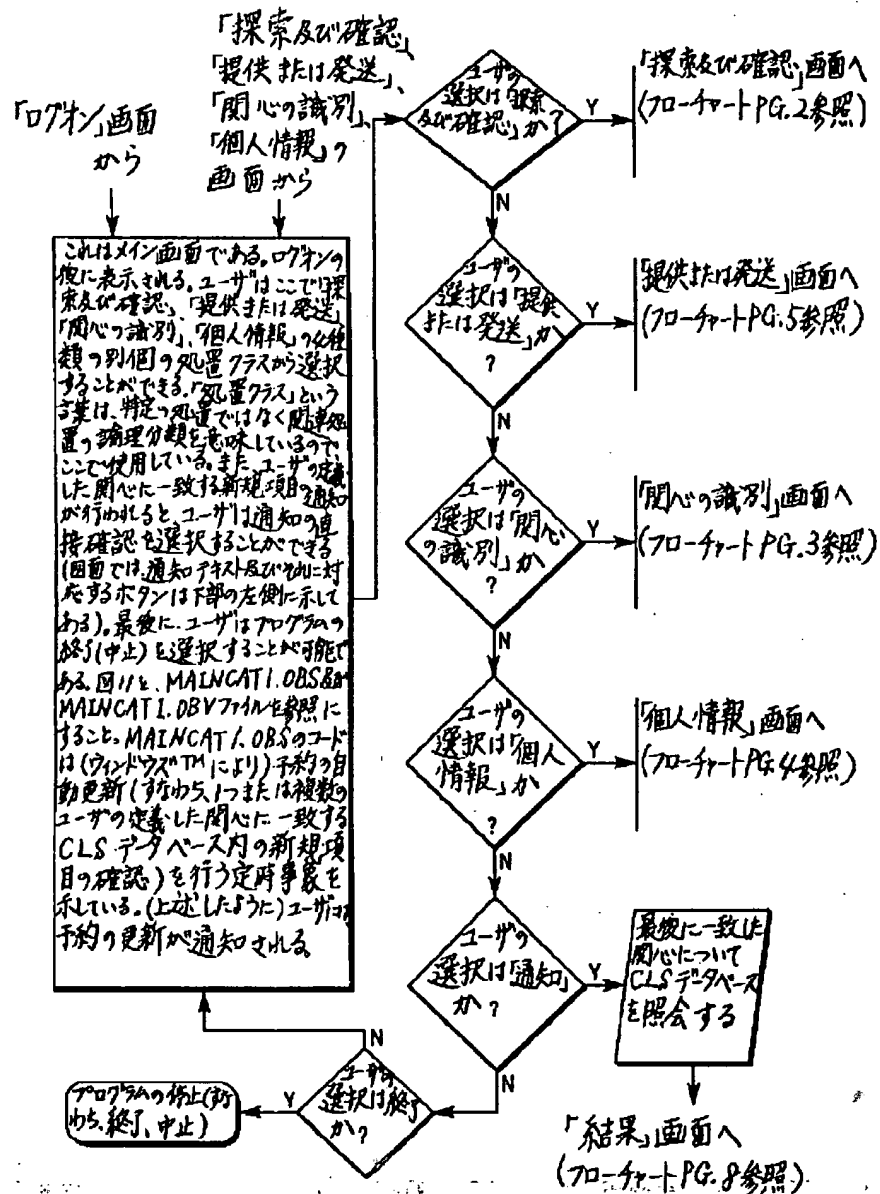 「ログオン」画面
から
「探索及び確認」、
「提供または発送」、
「関心の識別」、
「個人情報」の
画面から
これはメイン画面である。ログオンの
後に表示される。ユーザはここで「探
索及び確認」、「提供または発送」
「関心の識別」、「個人情報」の4種
類の別個の処置クラスから選択
することができる。「処置クラス」という
言葉は、特定の処置ではなく関連処
置の論理分類を意味しているので、
ここで使用している。また、ユーザの定義
した関心に一致する新規項目の通知
が行われると、ユーザは通知の直
接確認を選択することができる
(図面では、通知テキスト及びそれに対
応するボタンは下部の左側に示して
ある)。最後に、ユーザはプログラムの
終了(中止)を選択することが可能で
ある。図11と、MAINCAT1.OBS及び
MAINCAT1.OBVファイルを参照に
すること。MAINCAT1.OBSのコード
は(ウィンドウズTMにより)予約の自
動更新(すなわち、1つまたは複数の
ユーザの定義した関心に一致する
CLSデータベース内の新規項
目の確認)を行う定時事象を
示している。(上述したように)ユーザは
予約の更新が通知される。
ユーザの
選択は「探索
及び確認」か?
Y
「探索及び確認」画面へ
(フローチャートPG.2参照)
N
ユーザの
選択は「提供
または発送」か
?
Y
「提供または発送」画面へ
(フローチャートPG.5参照)
N
ユーザの
選択は「関心
の識別」か
?
Y
「関心の識別」画面へ
(フローチャートPG.3参照)
N
ユーザの
選択は「個人
情報」か
?
Y
「個人情報」画面へ
(フローチャートPG.4参照)
N
ユーザの
選択は「通知」
か?
Y
最後に一致した
関心について
CLSデータベース
を照会する
「結果」画面へ
(フローチャートPG.8参照)
N
ユーザの
選択は終了
か?
N
Y
プログラムの停止(すな
わち、終了、中止)